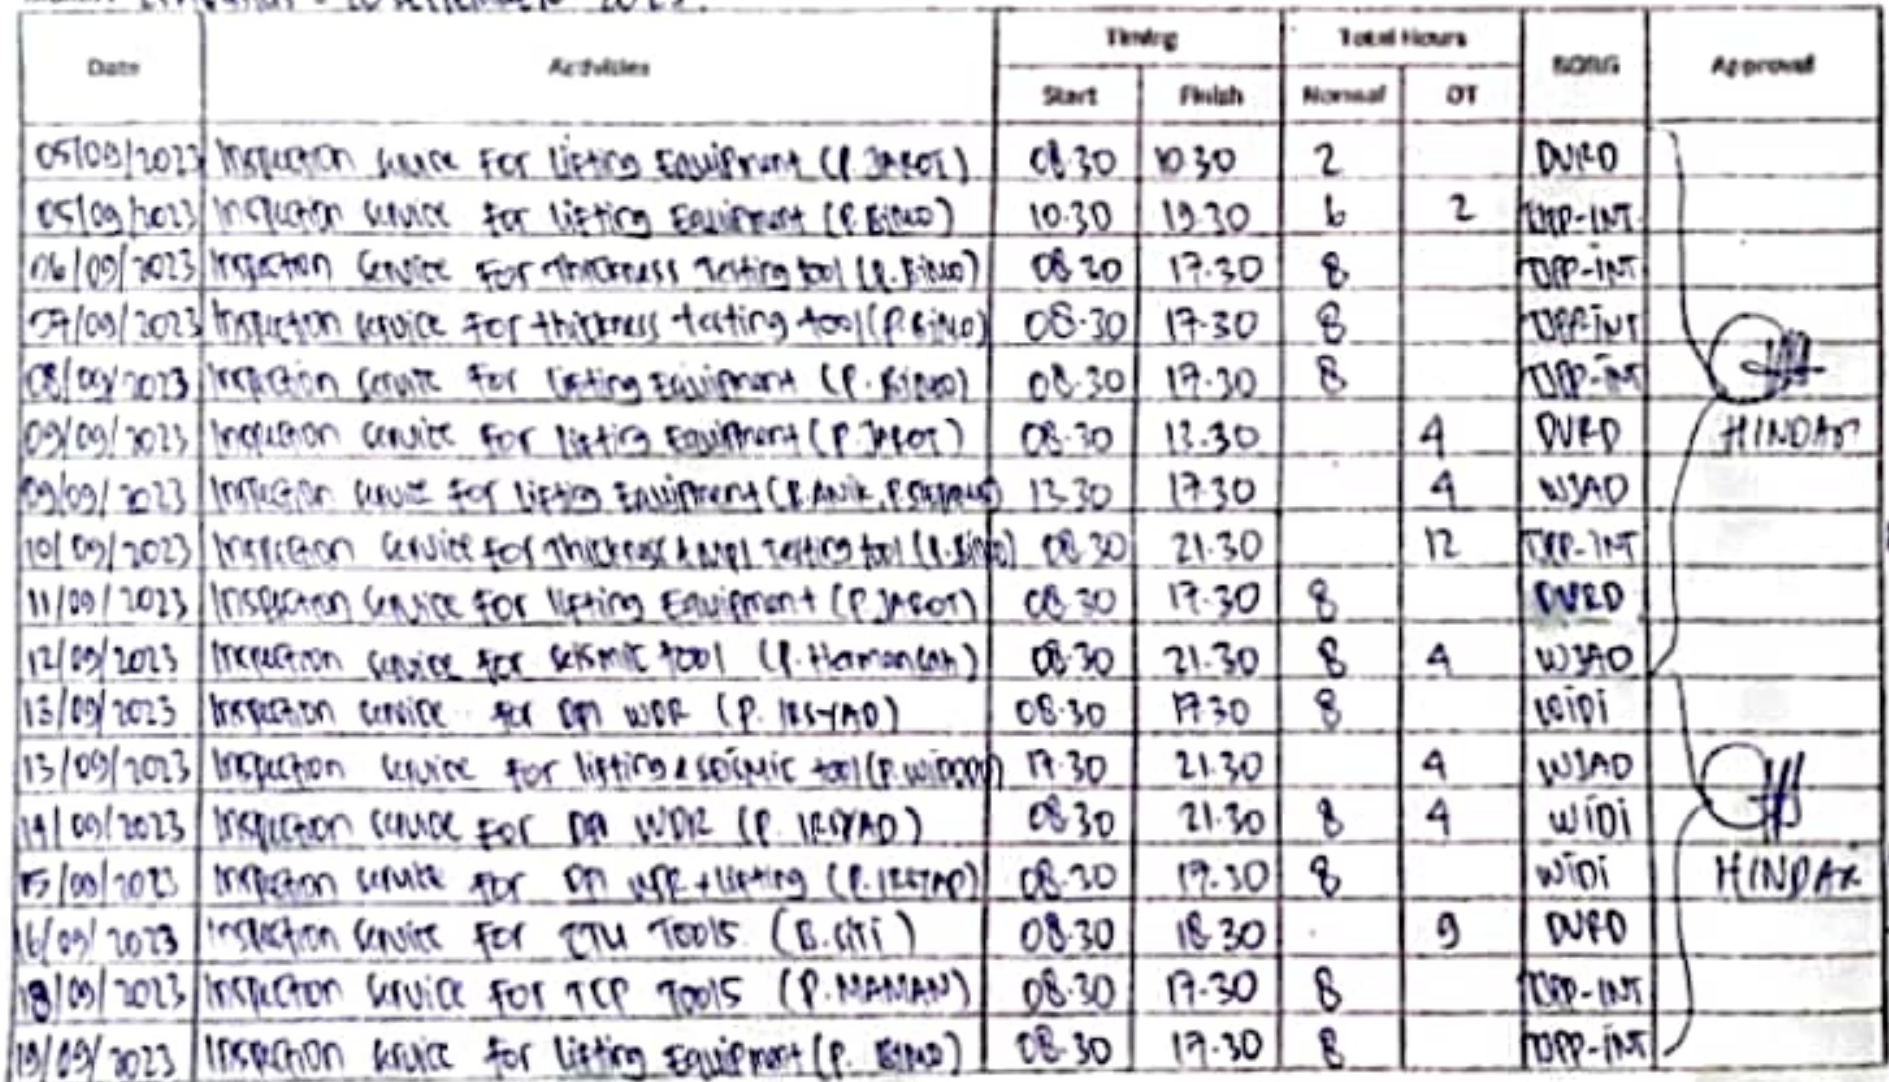 20 September 2023.
Date Activities Timing Total Hours Approval
Start Finish Normal OT
05/09/2023 Inspection Service For Lifting Equipment (P. JAROT) 08.30 10.30 2 DVRD
05/09/2023 Inspection Service for lifting Equipment (P. BINO) 10.30 19.30 6 2 TJPP-INT
06/09/2023 Inspection Service For Thickness Testing tool (P. BINO) 08.30 17.30 8 TJPP-INT
07/09/2023 Inspection Service For thickness testing tool (P. BINO) 08.30 17.30 8 TJPP-INT
08/09/2023 Inspection Service For Lifting Equipment (P. BINO) 08.30 17.30 8 TJPP-INT
09/09/2023 Inspection Service For lifting Equipment (P. JAROT) 08.30 13.30 4 DVRD HINDAR
09/09/2023 Inspection Service For lifting Equipment (P. ANIK, 13.30 17.30 4 WJAD
10/09/2023 Inspection Service for Thickness & MPI Testing tool (P. BINO) 08.30 21.30 12 TJPP-INT
11/09/2023 Inspection Service For lifting Equipment (P. JAROT) 08.30 17.30 8 DVRD
12/09/2023 Inspection Service for Seismic tool 08.30 21.30 8 4 WJAD
13/09/2023 Inspection Service for DPI WDR (P. IRSYAD) 08.30 17.30 8 WIDI
13/09/2023 Inspection Service for lifting & SEISMIC tool 17.30 21.30 4 WJAD
14/09/2023 Inspection Service For DPI WDR (P. IRSYAD) 08.30 21.30 8 4 WIDI
15/09/2023 Inspection Service for DPI WDR + Lifting (P. IRSYAD) 08.30 17.30 8 WIDI HINDAR
16/09/2023 Inspection Service For CTU TOOLS (B. SITI) 08.30 18.30 9 DVRD
18/09/2023 Inspection Service For TCP TOOLS (P. MAMAN) 08.30 17.30 8 TJPP-INT
19/09/2023 Inspection Service for Lifting Equipment (P. BINO) 08.30 17.30 8 TJPP-INT